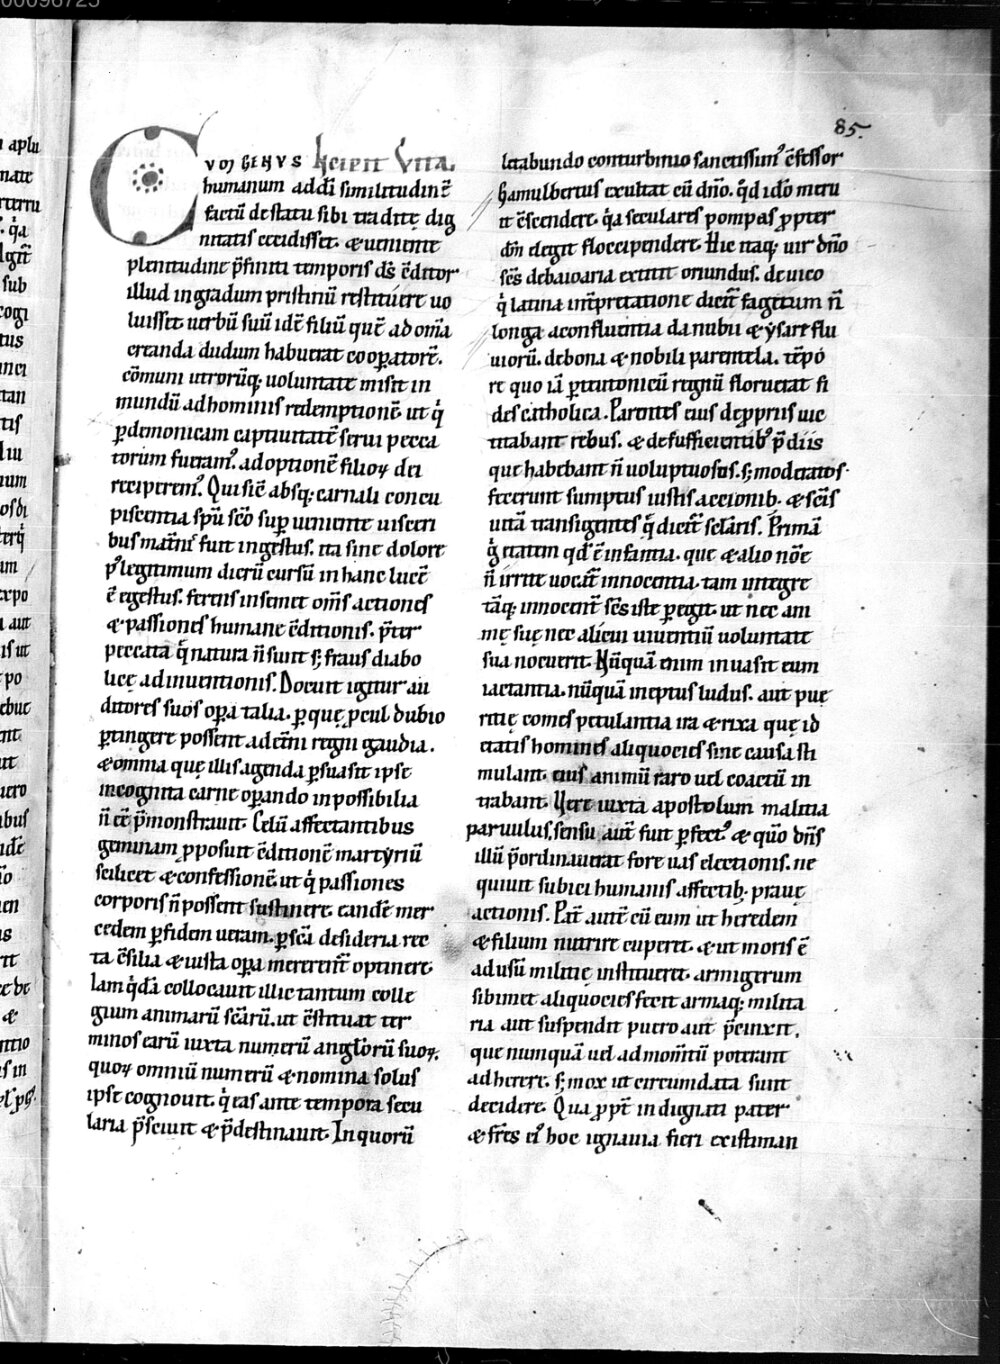 85.
CVM GENVS Incipit Vita.
humanum ad dei similitudinē
factū de statu sibi traditę dig
nitatis cecidisset. & ueniente
plenitudine p̄finiti temporis dš cōditor
illud in gradum pristinū restituere uo
luisset uerbū suū idē filiū quē ad om̄ia
creanda dudum habuerat coop̱atorē.
cōmuni utrorūq; uoluntate misit in
mundū ad hominis redemptionē ut q̇
p̱ demonicam captiuitatē serui pecca
torum fueram᷒. adoptionē filioꝝ dei
reciperem᷒. Qui sic absq; carnali concu
piscentia spū sc̄o sup̱ueniente uisceri
bus mat̄nis fuit ingestus. ita sine dolore
p᷒ legitimum dierū cursū in hanc lucē
ē egestus. ferens in semet om̄s actiones
& passiones humane cōditionis. p̄ter
peccata q̇ natura n̄ sunt s; fraus diabo
licę adinuentionis. Docuit igitur au
ditores suos op̱a talia. p̱ quę p̱cul dubio
p̱tingere possent ad et̄ni regni gaudia.
& omnia quę illis agenda p̱suasit ipse
incognita carne op̱ando inpossibilia
n̄ eē p̄monstrauit. Celū affectantibus
geminam p̱posuit cōditionē martẏriū
scilicet & confessionē. ut q̇ passiones
corporis n̄ possent sustinere. eandē mer
cedem p̱ fidem ueram. p̱ sc̄a desideria rec
ta cōsilia & iusta op̱a mererent᷒ optinere.
Iam q̇dā collocauit illic tantum colle
gium animarū sc̄arū. ut cōstituat ter
minos earū iuxta numerū angłorū suoꝝ.
quoꝝ omniū numerū & nomina solus
ipse cognouit. q̇ eas ante tempora secu
laria p̄sciuit & p̄destinauit. In quorū
letabundo conturbinio sanctissim᷒ cōfessor
Gamulbertus exultat cū dn̄o. q̇d ido meru
it cōscendere. q̇a seculares pompas p̱pter
dm̄ elegit floccipendere. Hic naq; uir dn̄o
sc̄s de baioaria extitit oriundus. de uico
q̇ latina int̄pretatione dicit᷒ fagetum n̄
longa a confluentia danubii & ẏsare flu
uiorū. de bona & nobili parentela. tēpo
re quo iā p̱ teutonicū regnū floruerat fi
des catholica. Parentes eius de p̱priis uic
titabant rebus. & de sufficientib᷒ p̄diis
que habebant n̄ uoluptuosos. s; moderatos
fecerunt sumptus iustis accionib; & sc̄is
uitā transigentes q̇ dicit᷒ sclaris. Primā
g̊ etatem qd̄ ē infantia. que & alio nōe
n̄ irrite uocat᷒ innocentia. tam integre
tāq; innocent᷒ sc̄s iste p̱egit. ut nec am
mę suę nec alicui uiuentiū uoluntate
sua nocuerit. Nūquā enim inuasit eum
iactantia. nūquā ineptus ludus. aut pue
ritię comes petulantia ira & rixa quę id
etatis homines aliquocies sine causa sti
mulant. eius animū raro uel coactū in
trabant. Uere iuxta apostolum malitia
paruulus. sensu aut̄ fuit p̱fect᷒ & quō dn̄s
illū p̄ordinauerat fore uas electionis. ne
quiuit subici humanis affectib; prauę
actionis. Pat̄ autē cū eum ut heredem
& filium nutrire cuperet. & ut moris ē
ad usū militię institueret. armigerum
sibimet aliquocies fecit armaq; milita
ria aut suspendit puero aut p̄cinxit.
que numquā uel ad momt̄ū poterant
adherere. s; mox ut circumdata sunt
decidere. Qua p̱pt̄ indignati pater
& fr̄es ei᷒ hoc ignauia fieri existiman